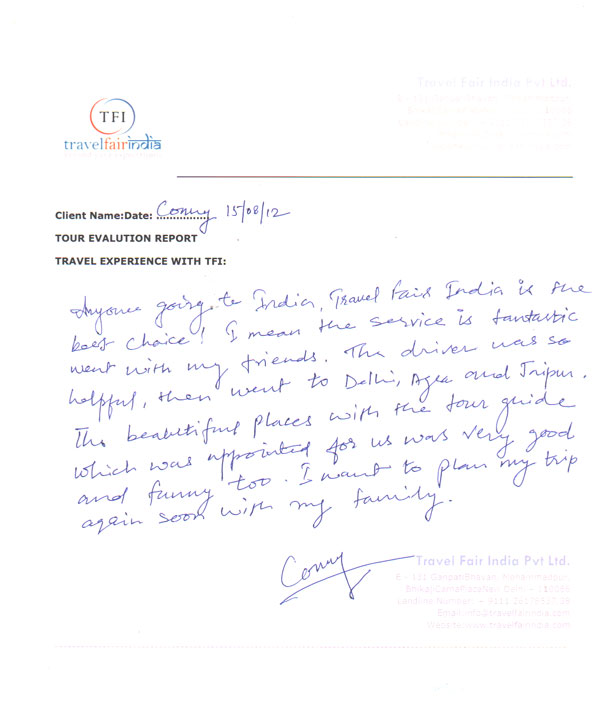 Travel Fair India Pvt Ltd.
TFI
travelfairindia
Client Name:Date: Conny 15/08/12
TOUR EVALUTION REPORT
TRAVEL EXPERIENCE WITH TFI:
Anyone going to India, Travel Fair India is the
best choice! I mean the service is fantastic
went with my friends. The driver was so
helpful, then went to Delhi, Agra and Jaipur.
The beautiful places with the tour guide
which was appointed for us was very good
and funny too. I want to plan my trip
again soon with my family.
Conny
Travel Fair India Pvt Ltd.
Email: info@travelfairindia.com
Website:www.travelfairindia.com